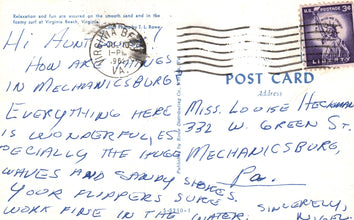 Relaxation and fun are enjoyed on the smooth sand and in the
foamy surf at Virginia Beach, Virginia.
by S. L. Bown
VIRGINIA BEACH
1-PM
VA.
U.S. POSTAGE
3¢
LIBERTY
Hi Aunt
How are things
in Mechanicsburg
Everything here
is wonderful, es-
pecially the huge
waves and sandy shores.
Your flippers sure
work fine in the water.
Sincerely,
POST CARD
Address
Miss. Louise Heckman
332 W. Green St.
Mechanicsburg,
Pa.